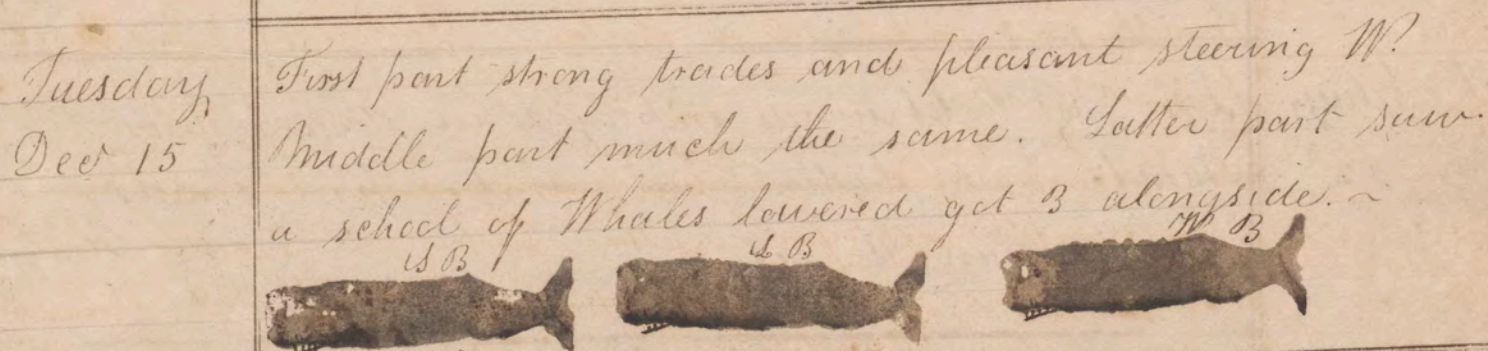 Tuesday
Dec 15
First part strong trades and pleasant steering W?
Middle part much the same. Latter part saw
a school of Whales lowered got 3 alongside. ~
S B
L B
W B